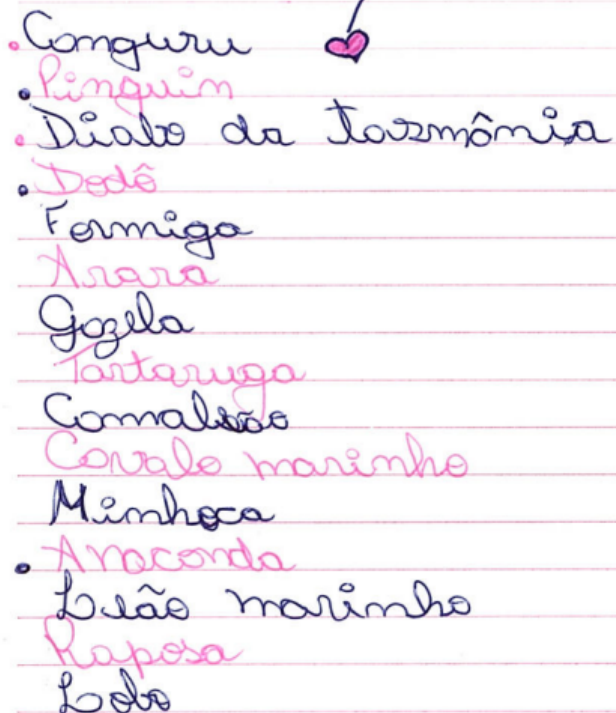 • Canguru
• Pinguin
• Diabo da tasmânia
• Dodô
Formiga
Arara
Gazela
Tartaruga
Camaleão
Cavalo marinho
Minhoca
• Anaconda
Leão marinho
Raposa
Lobo